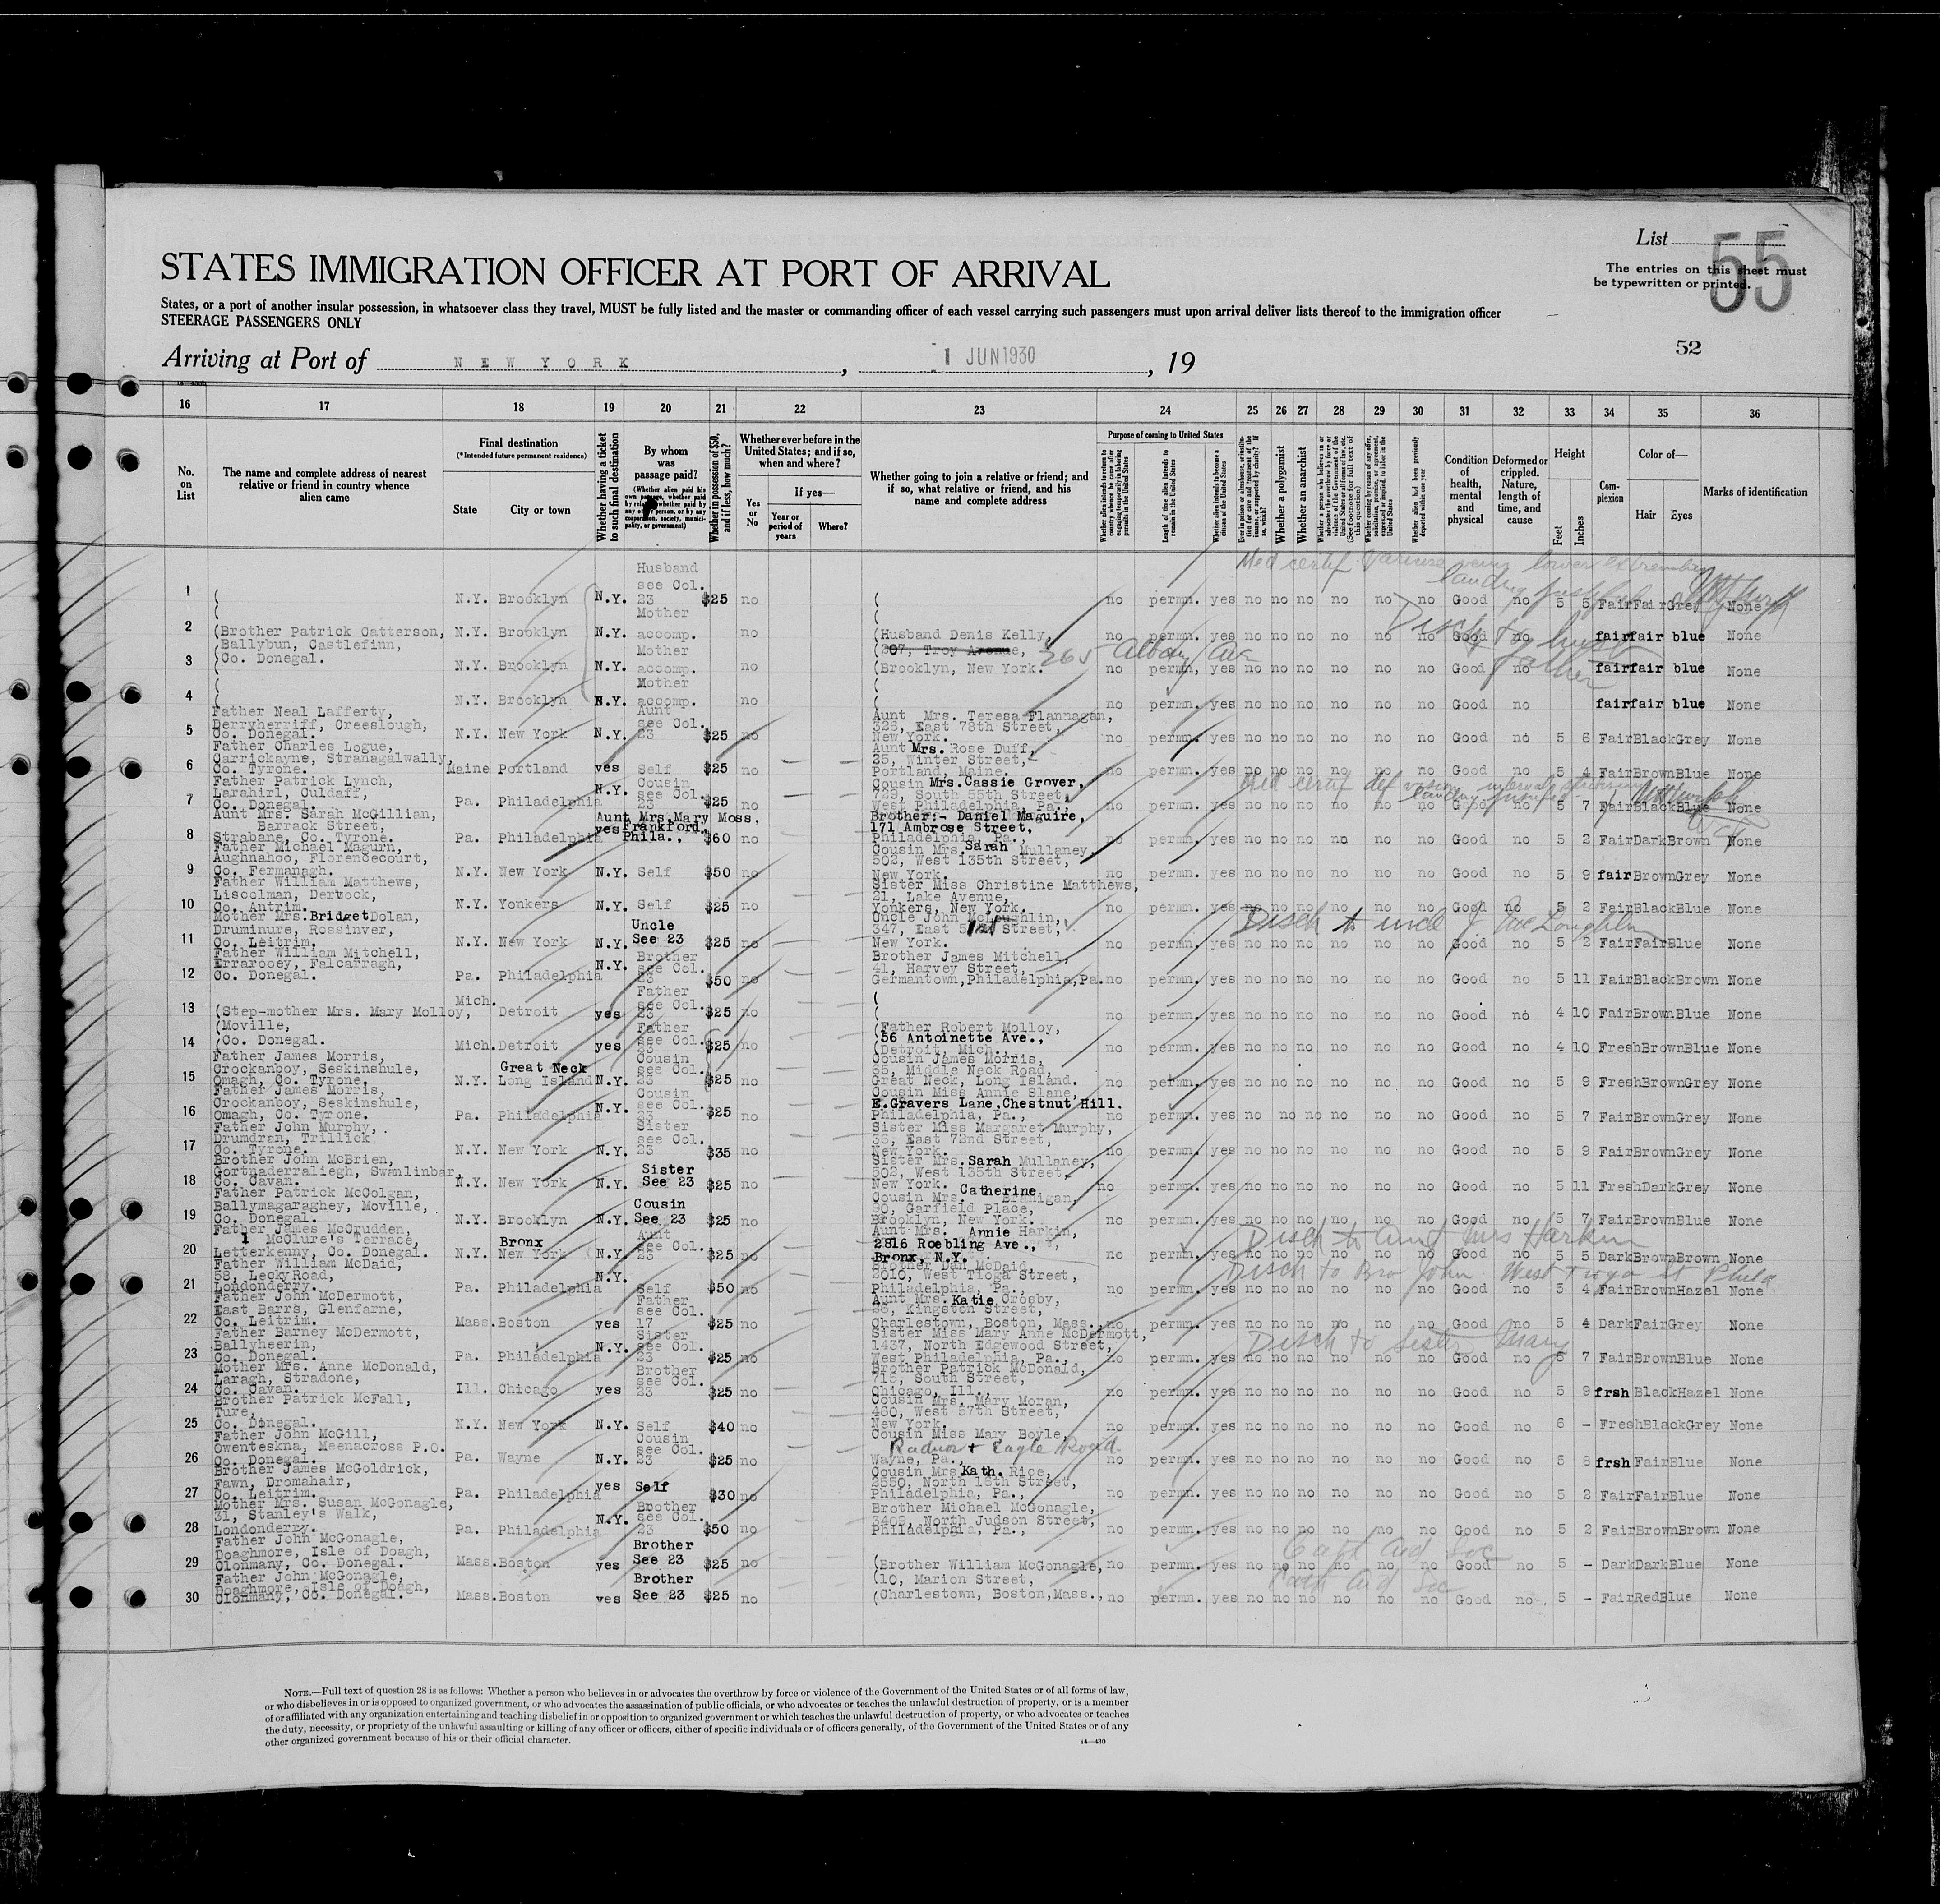 List 55
The entries on this sheet must
be typewritten or printed.
STATES IMMIGRATION OFFICER AT PORT OF ARRIVAL
States, or a port of another insular possession, in whatsoever class they travel, MUST be fully listed and the master or commanding officer of each vessel carrying such passengers must upon arrival deliver lists thereof to the immigration officer
STEERAGE PASSENGERS ONLY
52
Arriving at Port of NEW YORK, 1 JUN 1930, 19
16 17 18 19 20 21 22 23 24 25 26 27 28 29 30 31 32 33 34 35 36
No. on List
The name and complete address of nearest relative or friend in country whence alien came
Final destination
(*Intended future permanent residence)
State City or town
Whether having a ticket to such final destination
By whom was passage paid?
Whether in possession of $50, and if less, how much?
Whether ever before in the United States; and if so, when and where?
Yes or No
If yes—
Year or period of years
Where?
Whether going to join a relative or friend; and if so, what relative or friend, and his name and complete address
Purpose of coming to United States
Whether a polygamist
Whether an anarchist
Condition of health, mental and physical
Deformed or crippled. Nature, length of time, and cause
Height
Feet Inches
Complexion
Color of—
Hair Eyes
Marks of identification
Med certif. varicose veins lower extremities
1 ( N.Y. Brooklyn N.Y. Husband see Col. 23 $25 no ( no permn. yes no no no no no no Good no 5 5 Fair Fair Grey None
2 (Brother Patrick Catterson, N.Y. Brooklyn N.Y. Mother accomp. no (Husband Denis Kelly, no permn. yes no no no no no no Good no fair fair blue None
Ballybun, Castlefinn, (207, Troy Avenue, 265 Albany Ave
3 (Co. Donegal. N.Y. Brooklyn N.Y. Mother accomp. no (Brooklyn, New York. no permn. yes no no no no no no Good no fair fair blue None
4 ( N.Y. Brooklyn N.Y. Mother accomp. no ( no permn. yes no no no no no no Good no fair fair blue None
5 Father Neal Lafferty, Derryherriff, Creeslough, Co. Donegal. N.Y. New York N.Y. Aunt see Col. 23 $25 no Aunt Mrs. Teresa Flannagan, 326, East 78th Street, New York. no permn. yes no no no no no no Good no 5 6 Fair Black Grey None
6 Father Charles Logue, Carrickayne, Stranagalwally, Co. Tyrone. Maine Portland yes Self $25 no Aunt Mrs. Rose Duff, 25, Winter Street, Portland, Maine. no permn. yes no no no no no no Good no 5 4 Fair Brown Blue None
Med certif def vision
7 Father Patrick Lynch, Larahirl, Culdaff, Co. Donegal. Pa. Philadelphia N.Y. Cousin see Col. 23 $25 no Cousin Mrs. Cassie Grover, 729, South 55th Street, West Philadelphia, Pa., permn. yes no no no no no no Good no 5 7 Fair Black Blue None
8 Aunt Mrs. Sarah McGillian, Barrack Street, Strabane, Co. Tyrone. Pa. Philadelphia yes Aunt Mrs. Mary Moss, Frankford, Phila., $60 no Brother:- Daniel Maguire, 171 Ambrose Street, Philadelphia, Pa. no permn. yes no no no no no no Good no 5 2 Fair Dark Brown None
9 Father Michael Magurn, Aughnahoo, Florencecourt, Co. Fermanagh. N.Y. New York N.Y. Self $50 no Cousin Mrs. Sarah Mullaney, 502, West 135th Street, New York. no permn. yes no no no no no no Good no 5 9 fair Brown Grey None
10 Father William Matthews, Liscolman, Dervock, Co. Antrim. N.Y. Yonkers N.Y. Self $25 no Sister Miss Christine Matthews, 21, Lake Avenue, Yonkers, New York. no permn. yes no no no no no no Good no 5 2 Fair Black Blue None
Disch to uncle J McLoughlin
11 Mother Mrs. Bridget Dolan, Druminure, Rossinver, Co. Leitrim. N.Y. New York N.Y. Uncle See 23 $25 no Uncle John McLoughlin, 347, East Street, New York. no permn. yes no no no no no no Good no 5 2 Fair Fair Blue None
12 Father William Mitchell, Errarooey, Falcarragh, Co. Donegal. Pa. Philadelphia N.Y. Brother see Col. 23 $50 no Brother James Mitchell, 41, Harvey Street, Germantown, Philadelphia, Pa. no permn. yes no no no no no no Good no 5 11 Fair Black Brown None
13 (Step-mother Mrs. Mary Molloy, Mich. Detroit yes Father see Col. 23 $25 no ( no permn. yes no no no no no no Good no 4 10 Fair Brown Blue None
14 (Moville, (Co. Donegal. Mich. Detroit yes Father see Col. 23 $25 no (Father Robert Molloy, 56 Antoinette Ave., (Detroit, Mich., no permn. yes no no no no no no Good no 4 10 Fresh Brown Blue None
15 Father James Morris, Crockanboy, Seskinshule, Omagh, Co. Tyrone. N.Y. Great Neck Long Island N.Y. Cousin see Col. 23 $25 no Cousin James Morris, 65, Middle Neck Road, Great Neck, Long Island. no permn. yes no no no no no no Good no 5 9 Fresh Brown Grey None
16 Father James Morris, Crockanboy, Seskinshule, Omagh, Co. Tyrone. Pa. Philadelphia N.Y. Cousin see Col. 23 $25 no Cousin Miss Annie Slane, E. Gravers Lane, Chestnut Hill. Philadelphia, Pa., no permn. yes no no no no no no Good no 5 7 Fair Brown Grey None
17 Father John Murphy, Drumdran, Trillick Co. Tyrone. N.Y. New York N.Y. Sister see Col. 23 $35 no Sister Miss Margaret Murphy, 33, East 72nd Street, New York. no permn. yes no no no no no no Good no 5 9 Fair Brown Grey None
18 Brother John McBrien, Gortnaderraliegh, Swanlinbar, Co. Cavan. N.Y. New York N.Y. Sister See 23 $25 no Sister Mrs. Sarah Mullaney, 502, West 135th Street, New York. no permn. yes no no no no no no Good no 5 11 Fresh Dark Grey None
19 Father Patrick McColgan, Ballymagaraghey, Moville, Co. Donegal. N.Y. Brooklyn N.Y. Cousin See 23 $25 no Cousin Mrs. Catherine Branigan, 90, Garfield Place, Brooklyn, New York. no permn. yes no no no no no no Good no 5 7 Fair Brown Blue None
Disch to aunt Mrs Harkin
20 Father James McCrudden, 1 McClure's Terrace, Letterkenny, Co. Donegal. N.Y. Bronx New York N.Y. Aunt see Col. 23 $25 no Aunt Mrs. Annie Harkin, 2816 Roebling Ave., Bronx, N.Y. no permn. yes no no no no no no Good no 5 5 Dark Brown Brown None
Disch to Bro John West Tioga St Phila
21 Father William McDaid, 58, Lecky Road, Londonderry. Pa. Philadelphia N.Y. Self $50 no Brother Dan McDaid, 2010, West Tioga Street, Philadelphia, Pa., no permn. yes no no no no no no Good no 5 4 Fair Brown Hazel None
22 Father John McDermott, East Barrs, Glenfarne, Co. Leitrim. Mass. Boston yes Father see Col. 17 $25 no Aunt Mrs. Katie Crosby, Kingston Street, Charlestown, Boston, Mass., no permn. yes no no no no no no Good no 5 4 Dark Fair Grey None
Disch to sister Mary
23 Father Barney McDermott, Ballyheerin, Co. Donegal. Pa. Philadelphia N.Y. Sister see Col. 23 $25 no Sister Miss Mary Anne McDermott, 1437, North Edgewood Street, West Philadelphia, Pa., no permn. yes no no no no no no Good no 5 7 Fair Brown Blue None
24 Mother Mrs. Anne McDonald, Laragh, Stradone, Co. Cavan. Ill. Chicago yes Brother see Col. 23 $25 no Brother Patrick McDonald, 715, South Street, Chicago, Ill., no permn. yes no no no no no no Good no 5 9 frsh Black Hazel None
25 Brother Patrick McFall, Ture, Co. Donegal. N.Y. New York N.Y. Self $40 no Cousin Mrs. Mary Moran, 460, West 57th Street, New York. no permn. yes no no no no no no Good no 6 - Fresh Black Grey None
26 Father John McGill, Owenteskna, Meenacross P.O. Co. Donegal. Pa. Wayne N.Y. Cousin see Col. 23 $25 no Cousin Miss Mary Boyle, Radnor + Eagle Road. Wayne, Pa., no permn. yes no no no no no no Good no 5 8 frsh Fair Blue None
27 Brother James McGoldrick, Fawn, Dromahair, Co. Leitrim. Pa. Philadelphia yes Self $30 no Cousin Mrs. Kath. Rice, 2550, North 18th Street, Philadelphia, Pa., no permn. yes no no no no no no Good no 5 2 Fair Fair Blue None
28 Mother Mrs. Susan McGonagle, 31, Stanley's Walk, Londonderry. Pa. Philadelphia N.Y. Brother see Col. 23 $50 no Brother Michael McGonagle, 3409, North Judson Street, Philadelphia, Pa., no permn. yes no no no no no no Good no 5 2 Fair Brown Brown None
29 Father John McGonagle, Doaghmore, Isle of Doagh, Clonmany, Co. Donegal. Mass. Boston yes Brother See 23 $25 no (Brother William McGonagle, no permn. yes no no no no no no Good no 5 - Dark Dark Blue None
(10, Marion Street,
30 Father John McGonagle, Doaghmore, Isle of Doagh, Clonmany, Co. Donegal. Mass. Boston yes Brother See 23 $25 no (Charlestown, Boston, Mass., no permn. yes no no no no no no Good no 5 - Fair Red Blue None
NOTE.—Full text of question 28 is as follows: Whether a person who believes in or advocates the overthrow by force or violence of the Government of the United States or of all forms of law,
or who disbelieves in or is opposed to organized government, or who advocates the assassination of public officials, or who advocates or teaches the unlawful destruction of property, or is a member
of or affiliated with any organization entertaining and teaching disbelief in or opposition to organized government or which teaches the unlawful destruction of property, or who advocates or teaches
the duty, necessity, or propriety of the unlawful assaulting or killing of any officer or officers, either of specific individuals or of officers generally, of the Government of the United States or of any
other organized government because of his or their official character.
14—430